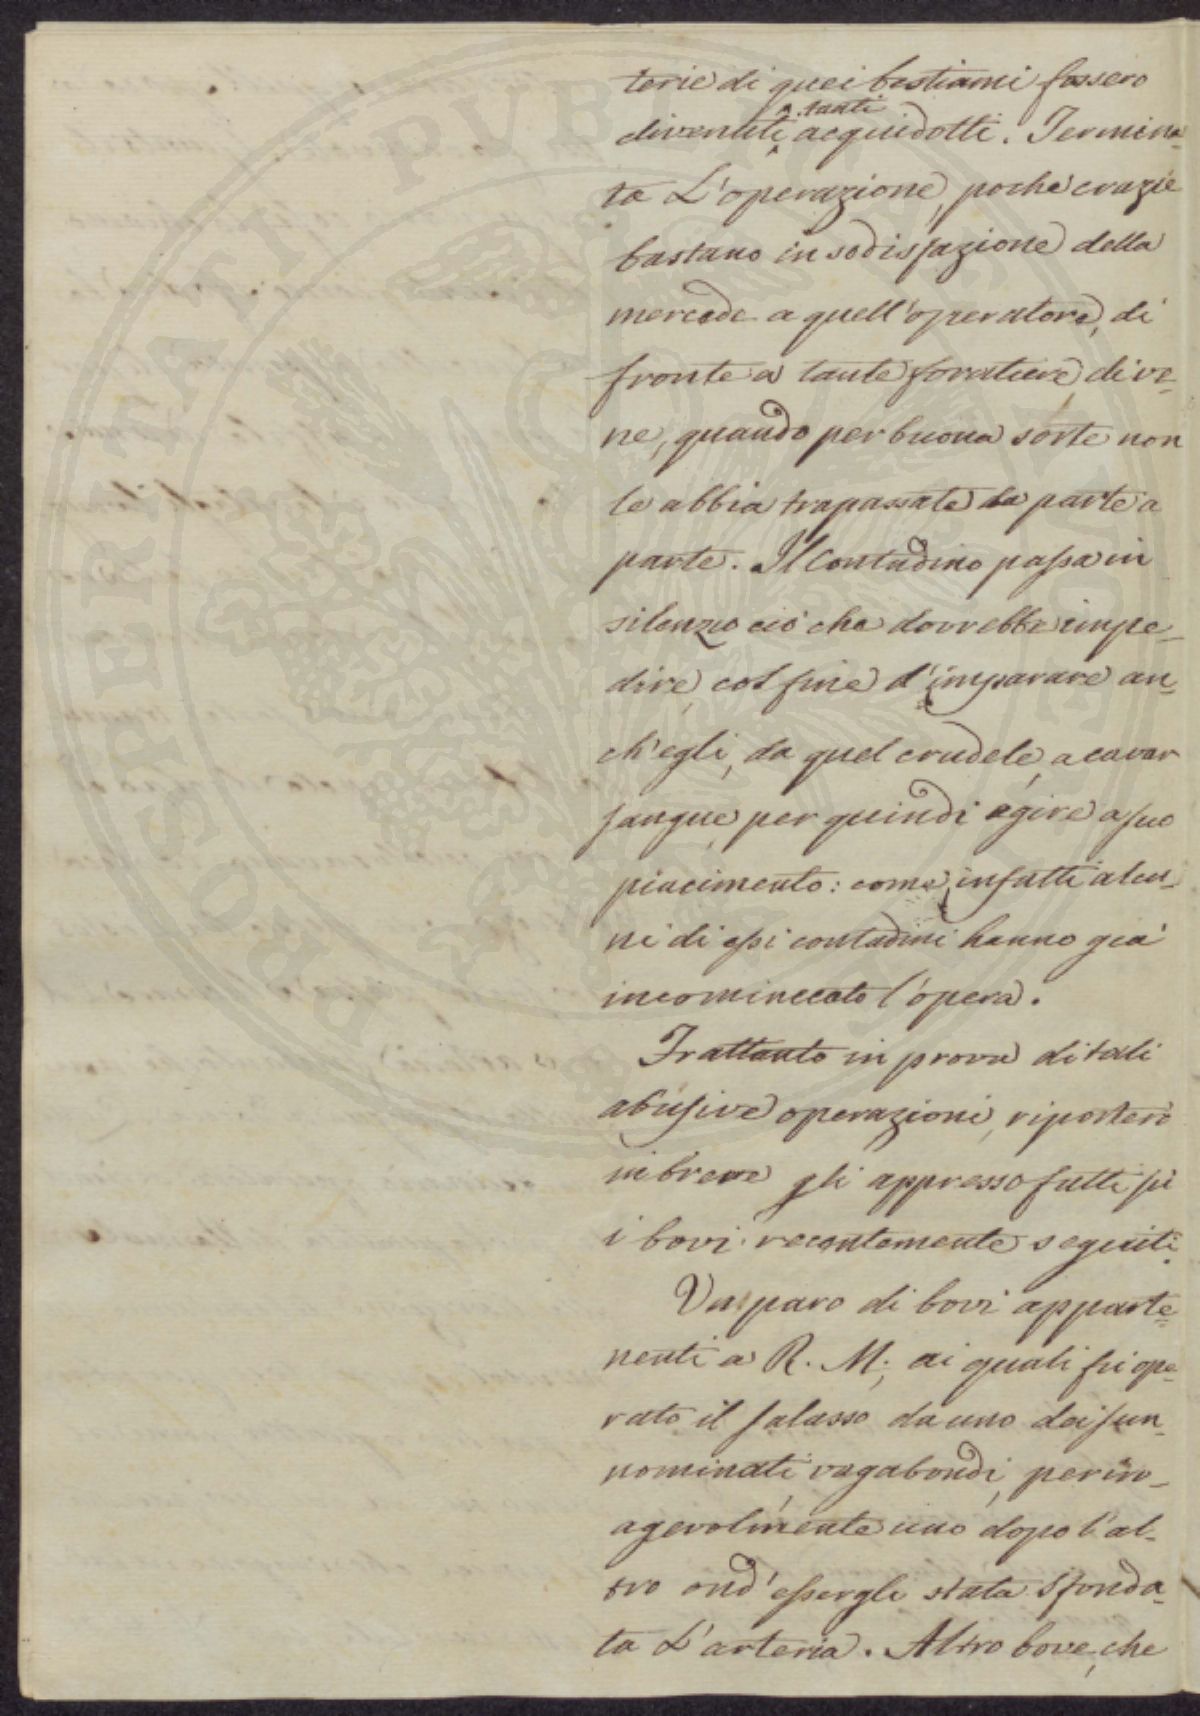 PROSPERITATI PUBLICAE AUGENDAE
terie di quei bestiami fossero
diventati ^a tanti acquidotti. Termina-
ta L'operazione, poche crazie
bastano in sodisfazione della
mercede a quell'operatore, di
fronte a tante foratiere di ve-
ne, quando per buona sorte non
le abbia trapassate da parte a
parte. Il Contadino passa in
silenzio ciò che dovrebbe impe-
dire, col fine d'imparare an-
ch'egli, da quel crudele, a cavar
sangue, per quindi agire a suo
piacimento: come, infatti alcu-
ni di essi contadini hanno già
incominciato l'opera.
Frattanto in prova di tali
abusive operazioni, riporterò
in breve gli appresso fatti su
i bovi recentemente seguiti.
Un paro di bovi apparte-
nenti a R. M; ai quali fu ope-
rato il salasso da uno dei sun-
nominati, vagabondi, perirno-
agevolmente uno dopo l'al-
tro ond'essergli stata sfonda-
ta L'arteria. Altro bove, che